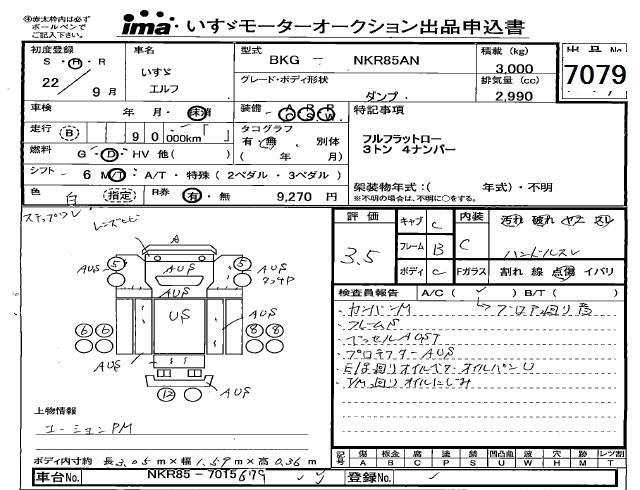 ㊟赤太枠内は必ず
ボールペンで
ご記入下さい。
ima いすゞモーターオークション出品申込書
初度登録
S・H・R
22 年 9 月
車名
いすゞ
エルフ
型式
BKG － NKR85AN
グレード・ボディ形状
ダンプ
積載 (kg)
3,000
排気量 (cc)
2,990
出品No
7079
車検 年・月・未消
装備 A R R
C S W
特記事項
走行 (B) 9 0 ,000km
タコグラフ
有・無 別体
( 年 月)
フルフラットロー
3トン 4ナンバー
燃料 G・D・HV 他( )
シフト 6 M/T・A/T・特殊（2ペダル・3ペダル）
色 白 (指定) R券 有・無 9,270 円
架装物年式：( 年式)・不明
※不明の場合は、不明に○をする。
ステップワレ レンズヒビ
評価 3.5
キャブ C
フレーム B
ボディ C
内装 C
Fガラス
汚れ 破れ ヤニ スレ
ハンドルスレ
割れ 線 点傷 イバリ
A
5 AUS 5
AUS AUS
US
AUS AUS
6 6 8 8
AUS AUS
12 AUS
検査員報告 A/C( ✓ ) B/T( )
・カンバンM
・フレームS
・プロテクターAUS
・T/M廻りオイルにじみ
上物情報
ボディ内寸約 長 3.05 m×幅 1.59 m×高 0.36 m
記号 傷 板金 腐 塗 錆 凹凸歪 波 穴 外 レツ割
A B C P S U W H M T
車台No. NKR85－7015679
登録No.